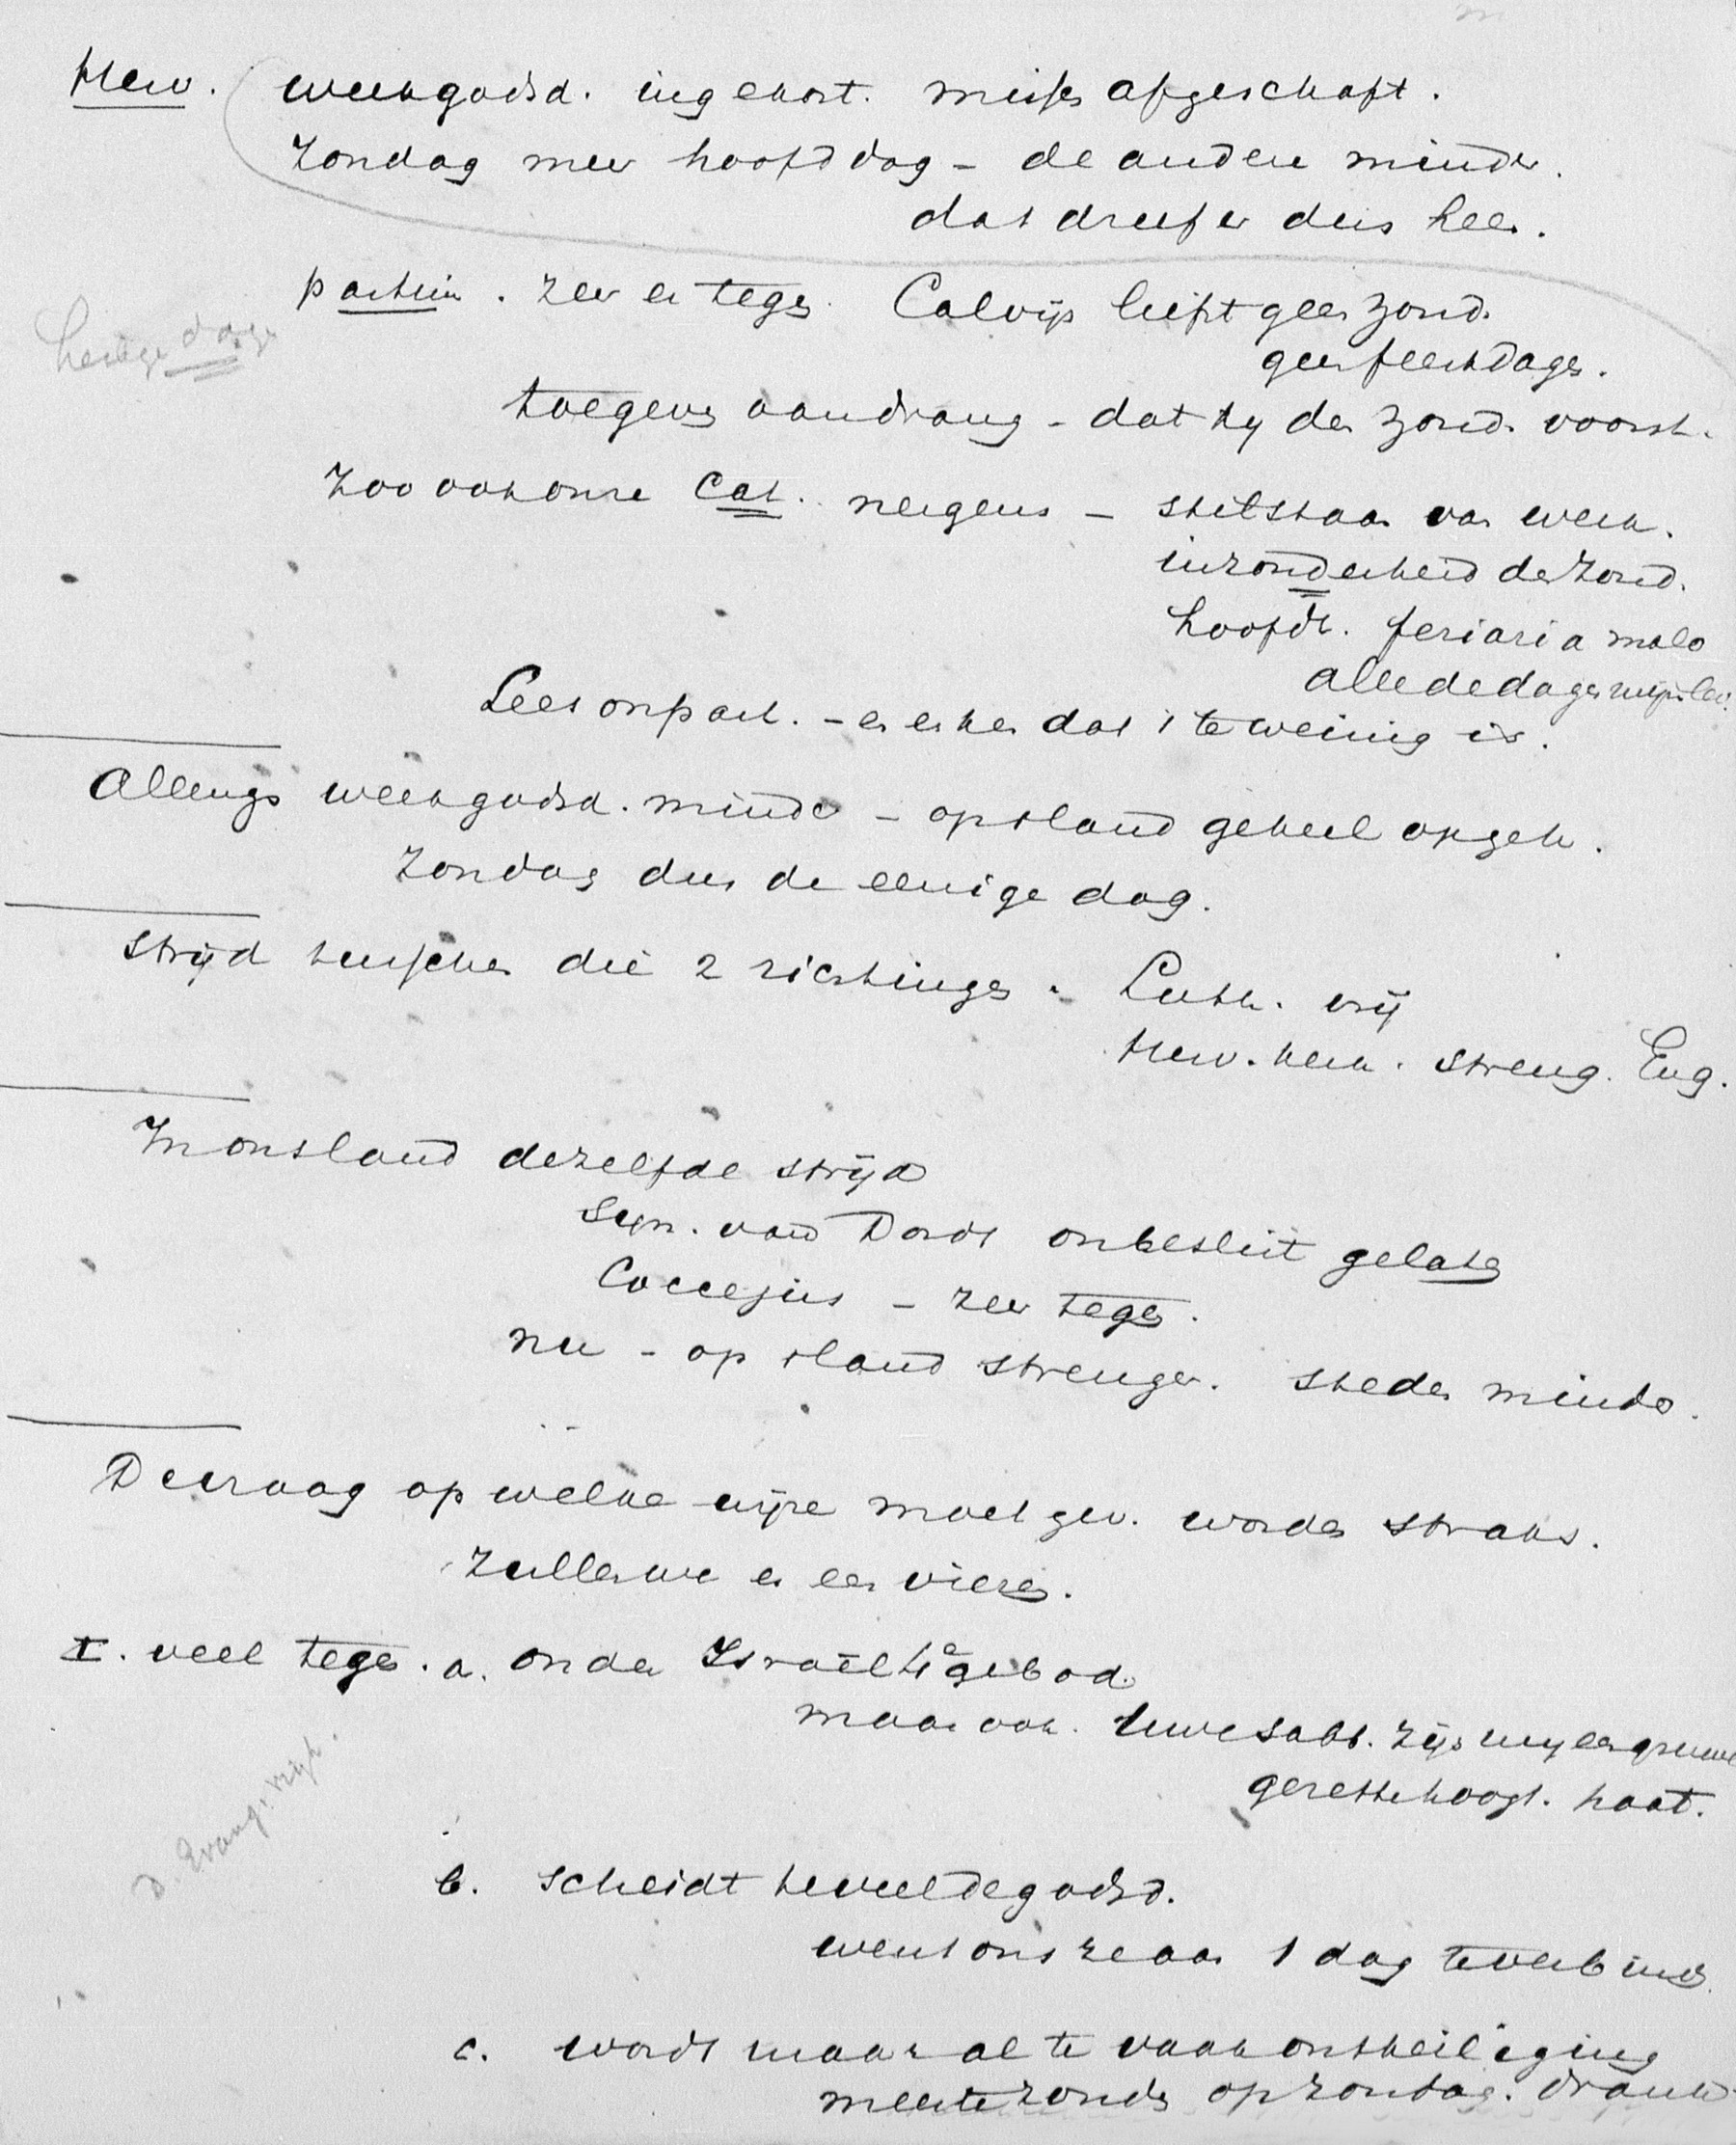 Herv. weekgodsd. ingekort. misse afgeschaft.
Zondag meer hoofddag - de andere minder.
dat dreef er dus heen.
partim. zeer er tegen. Calvijn liefst geen zond.
geen feestdagen.
heilige dage
toegeven aandrang - dat hij den zond. voorst.
Zoo ook onze Cat. nergens - stilstaan van werk.
inzonderheid den zond.
hoofdz. feriari a malo
alle de dagen mijns lev.
Lees onpart. - en erken dat 1 te weinig is.
Allengs weekgodsd. minder - op 't land geheel opgeh.
Zondag dus de eenige dag.
Strijd tusschen die 2 richtingen. Luth. vrij
Herv. kerk. streng. Eng.
In ons land dezelfde strijd
Syn. van Dordt onbeslist gelaten
Coccejus - zeer tegen.
nu - op 't land strenger. steden minder.
De vraag op welke wijze moet gev. worden straks.
Zullen we er een vieren.
I. veel tegen. a. onder Israël 4e gebod.
maar ook. uwe sabb. zijn mij een gruwel
gezette hoogt. haat.
D. Evang. vrijh.
b. scheidt te veel de godsd.
went ons ze aan 1 dag te verbinden.
c. wordt maar al te vaak ontheiliging
meeste zonden op zondag. drank